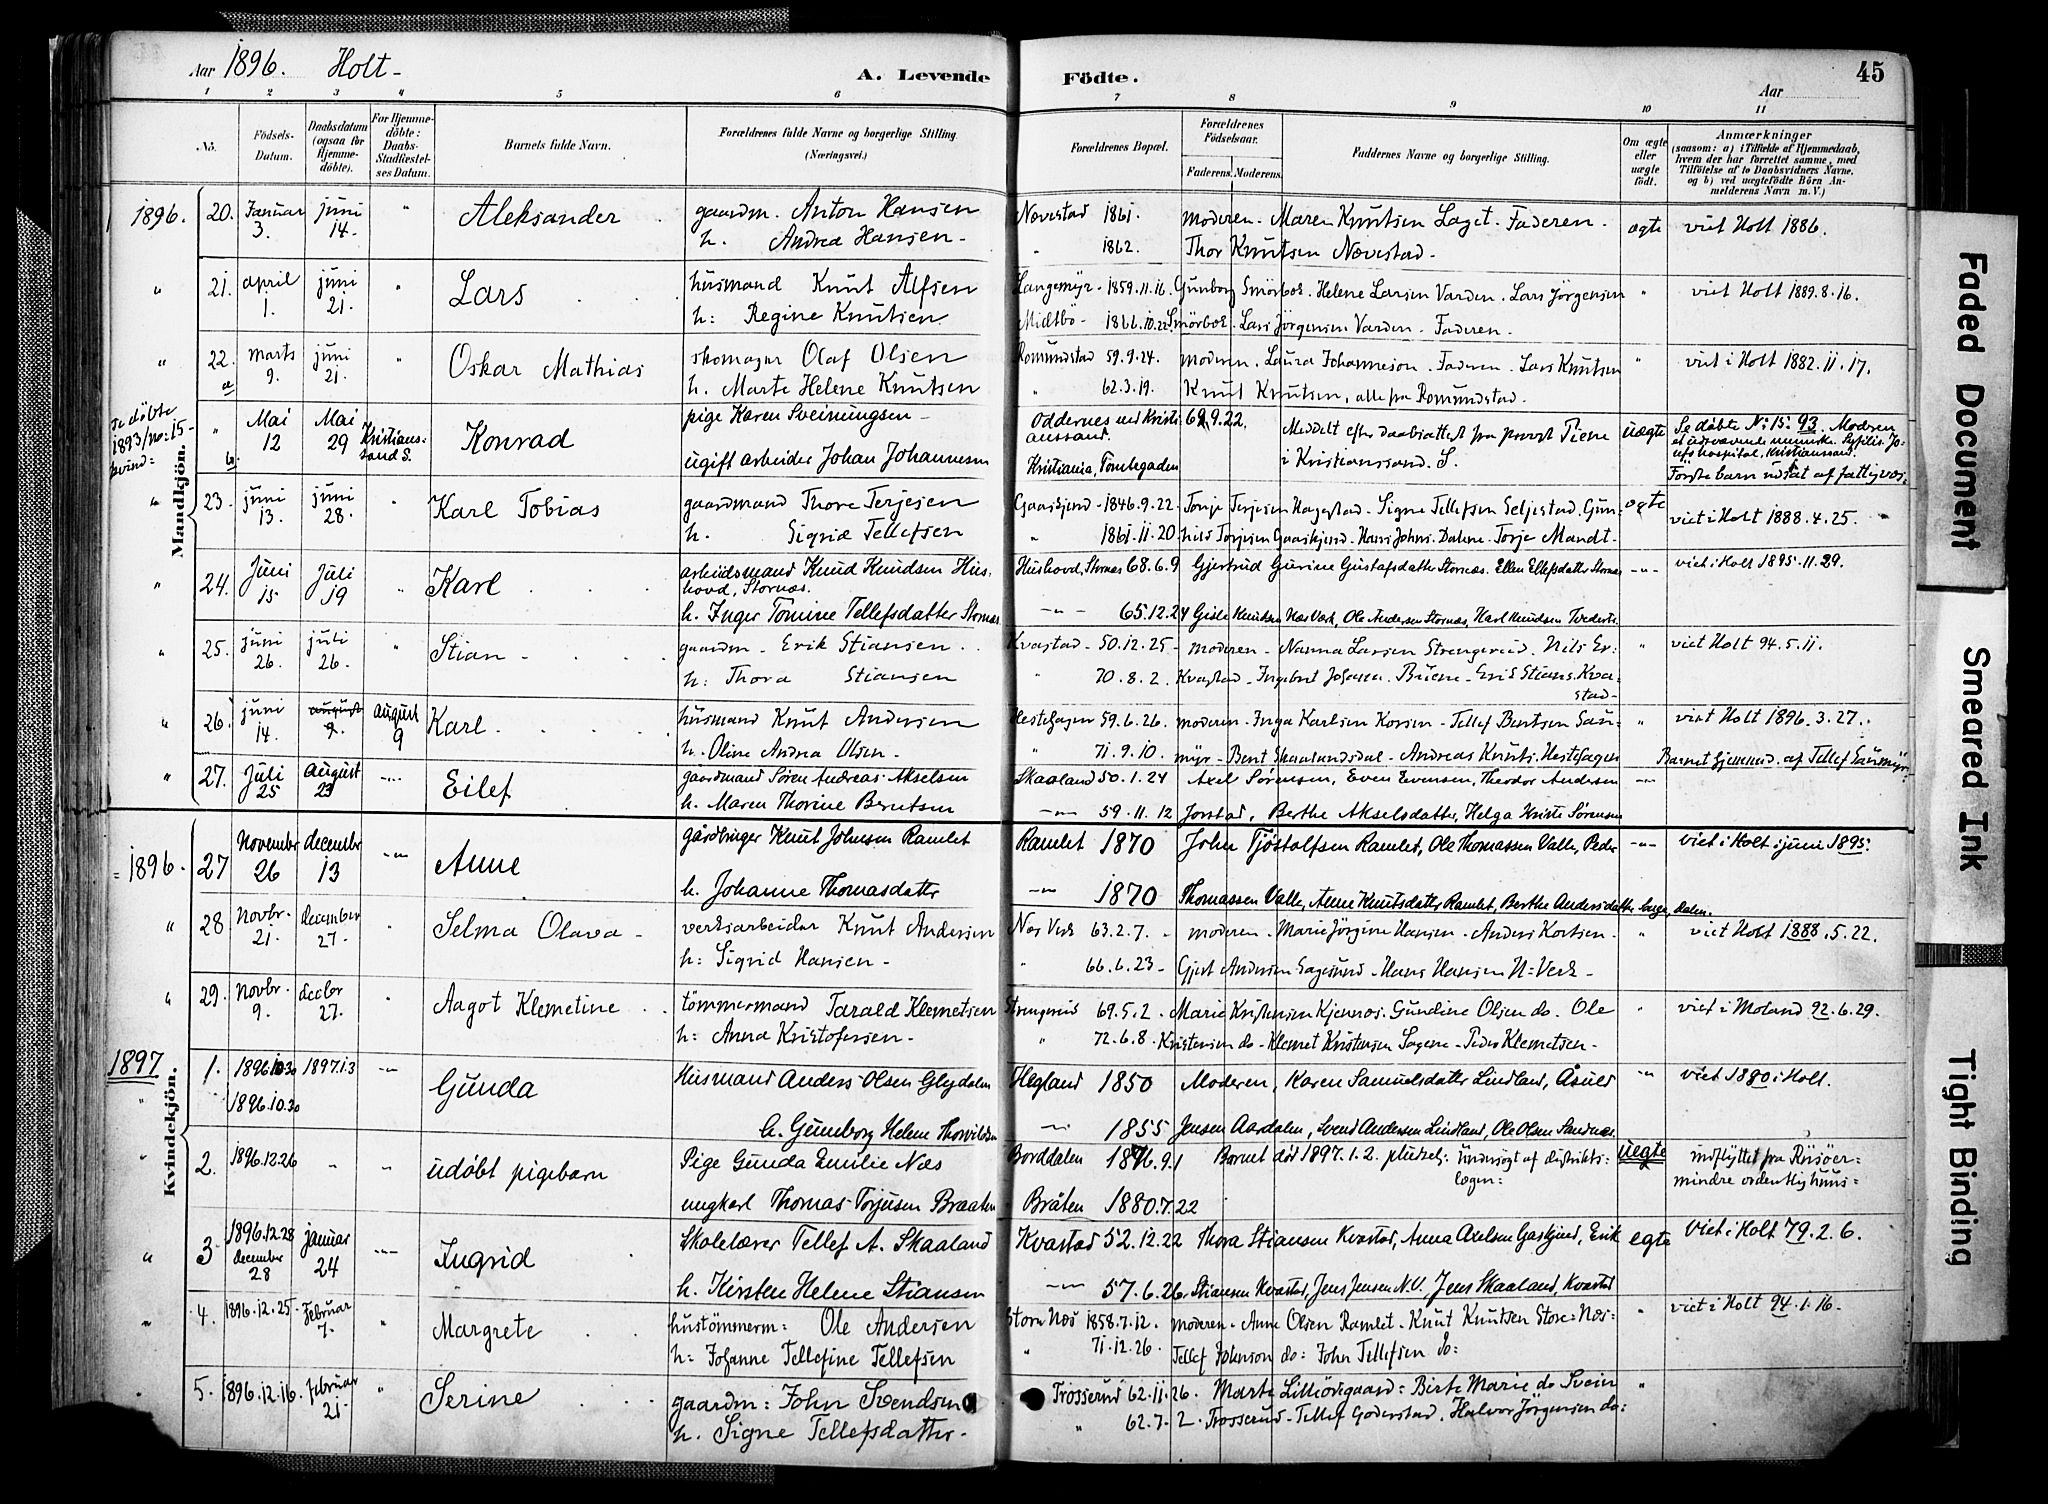 Aar 1896. Holt-
A. Levende
Födte.
Aar
45
1 2 3 4 5 6 7 8 9 10 11
No.
Födsels-
Datum.
Daabsdatum
(ogsaa for
Hjemme-
döbte).
For Hjemme-
döbte:
Daabs-
Stadfæstel-
ses Datum.
Barnets fulde Navn.
Forældrenes fulde Navne og borgerlige Stilling
(Næringsvei.)
Forældrenes Bopæl.
Forældrenes
Födselsaar.
Faderens. Moderens.
Faddernes Navne og borgerlige Stilling.
Om ægte
eller
uægte
født.
Anmærkninger
(saasom: a) i Tilfælde af Hjemmedaab,
hvem der har forrettet samme, med
Tilföielse af to Daabsvidners Navne,
og b) ved uægtefødte Börn An-
melderens Navn m. V.)
Mandkjön.
1896. 20. Januar 3. juni 14. " Aleksander . gaardm. Anton Hansen Nævestad 1861. moderen - Maren Knutsen Laget. Faderen. ægte viet Holt 1886.
h. Andrea Hansen - " 1862. Thor Knutsen Nævestad -
" 21. april 1. juni 21. " Lars husmand Knut Alfsen Langemyr - 1859.11.16. Gunborg Smörbok. Helene Larsen Varden. Lars Jörgensen " viet Holt 1889.8.16.
h: Regine Knutsen Midtbö - Smörbok. Lars Jörgensen Varden - Faderen -
" 22. a marts 9. juni 21. " Oskar Mathias skomager Olaf Olsen Romundstad 59.9.24. moderen. Laura Johannesen. Faderen. Lars Knutsen " viet i Holt 1882.11.17.
h. Marte Helene Knutsen " 62.3.19. Knut Knutsen, alle fra Romundstad.
se döbte
1893/no: 15-
" b Mai 12 Mai 29 Kristians-
sand S. Konrad pige Karen Sveinungsen - Oddernes ved Kristi-
aussand. 9.22. Meddelt efter daabsattest fra provst Tiene uægte Se døbte No: 15. 93. Modren
ugift arbeider Johan Johannesen Kristiania, Tomtegaden i Kristianssand. S.
Første barn udsat af fattigvæs.
" 23. juni 13. juni 28. " Karl Tobias gaardmand Thore Terjesen 1846.9.22. Terjesen Hagestad - Signe Tellefsen Seljestad. Gun- ægte viet i Holt 1888.4.25.
h. Sigrid Tellefsen " 1861.11.20. hild Torjesen Gaaskjend. Hans Johns. Dalene. Torje Mandt.
" 24. Juni 15 Juli 19 " Karl arbeidsmand Knud Knudsen Hus-
hovd, Stornæs. Hushovd, Stornæs 68.6.9 Gjertrud Gurine Gustafsdatter Stornæs. Ellen Ellefsdatter Stornæs -"- viet i Holt 1895.11.29.
h. Inger Tomine Tellefsdatter Stornæs -"- 65.12.24 Gisle Knudsen Næs Værk, Ole Andersen Stornæs, Karl Knudsen Tvedestr.
" 25. juni 26. juli 26. " Stian - gaardm - Erik Stiansen . Kvastad - 50.12.25 - moderen - Nanna Larsen Strengereid. Nils Er: " viet Holt 94.5.11.
h: Thora Stiansen " 70.8.2. Kvastad - Ingebret Johansen - Erik Stians. Kva-
stad-
" 26. juni 14. august 9. august 9 Karl - husmand Knut Andersen Hestehagen 59.6.26. moderen - Inga Karlsen Korsen - Tellef Bentsen Saur- " viet Holt 1896.3.27.
h. Oline Andrea Olsen - " 71.9.10. myr - Bent Skaalandsdal - Andreas Knuts. Hestehagen Barnet hjemmed. af Tellef Saurmyr.
" 27. Juli 25 August 23 -"- Eilef gaardmand Søren Andreas Akselsen Skaaland 50.1.24 Axel Sørensen, Even Evensen, Theodor Andersen -"-
h. Maren Thorine Berntsen -"- 59.11.12 Jorstad, Berthe Akselsdatter, Helga Kriste Sørensen
Kvindekjön.
1896. 27 November 26 december 13 -"- Anne gårdbruger Knut Johnsen Ramlet Ramlet 1870 John Tjöstolfsen Ramlet, Ole Thomassen Valle, Peder -"- viet i Holt i juni 1895.
h. Johanne Thomasdatter -"- 1870 Thomassen Valle, Anne Knutsdatter Ramlet, Berthe Andersdatter
" 28 Novbr. 21. december 27. " Selma Olava - verksarbeider Knut Andersen Næs Verk 63.2.7. - moderen - Marie Jörgine Hansen - Anders Kortsen - " viet Holt 1888.5.22.
h: Sigrid Hansen - " 66.6.23 - Gjert Andersen Sagesund - Hans Hansen N: Verk -
" 29. Novbr. 9. decbr 27. " Aagot Klemetine . . tömmermand Tarald Klemetsen Strengereid 69.5.2. Marie Kristensen Kjennæs. Gundine Olsen do. Ole " viet i Moland 92.6.29.
h: Anna Kristofersen - " 72.6.8. Kristensen do - Klemet Kristensen Sagene - Peder Klemetsen -
1897 1. 1896.10.30 1897.1.3 -"- Gunda Husmand Anders Olsen Glydalen Hegland 1850 Moderen, Karen Samuelsdatter Lindland, Åsuld -"- viet 1880 i Holt.
1896.10.30 h. Gunborg Helene Thorvildsen -"- 1855 Jensen Aardalen, Svend Andersen Lindland, Ole Olsen Sandnæs.
" 2. 1896.12.26 - - udøbt pigebarn Pige Gunda Emilie Næs Borddalen 1876.9.1 Barnet død 1897.1.2. pludselig: undersøgt af distrikts-
lægen: uægte indflyttet fra Risöer-
mindre ordentlig huus=
ungkarl Thomas Torjusen Braaten Bråten 1880.7.22
" 3 1896.12.28
december 28 januar 24 -"- Ingrid . Skolelærer Tellef A. Skaaland Kvastad 52.12.22 Thora Stiansen Kvastad, Anna Axelsen Gaskjend, Erik egte Viet i Holt 79.2.6.
h. Kirsten Helene Stiansen -"- 57.6.26. Stiansen Kvastad, Jens Jensen N.V. Jens Skaaland, Kvastad
" 4. 1896.12.25. Februar 7. " Margrete . . hustömmerm: Ole Andersen Store Næs 1858.7.12. moderen - Anne Olsen Ramlet - Knut Knutsen Store-Næs: " viet i Holt 94.1.16.
h: Johanne Tellefine Tellefsen " 71.12.26. Tellef Johnson do: John Tellefsen do:
" 5. 1896.12.16. februar 21. " Serine . . . gaardm: John Svendsen Trosserud 62.11.26. Marte Lilleödegaard: Birte Marie do Svein "
h. Signe Tellefsdatter - " 62.7.2. Trosserud - Tellef Goderstad. Halvor Jörgensen do:
Faded Document
Smeared Ink
Tight Binding